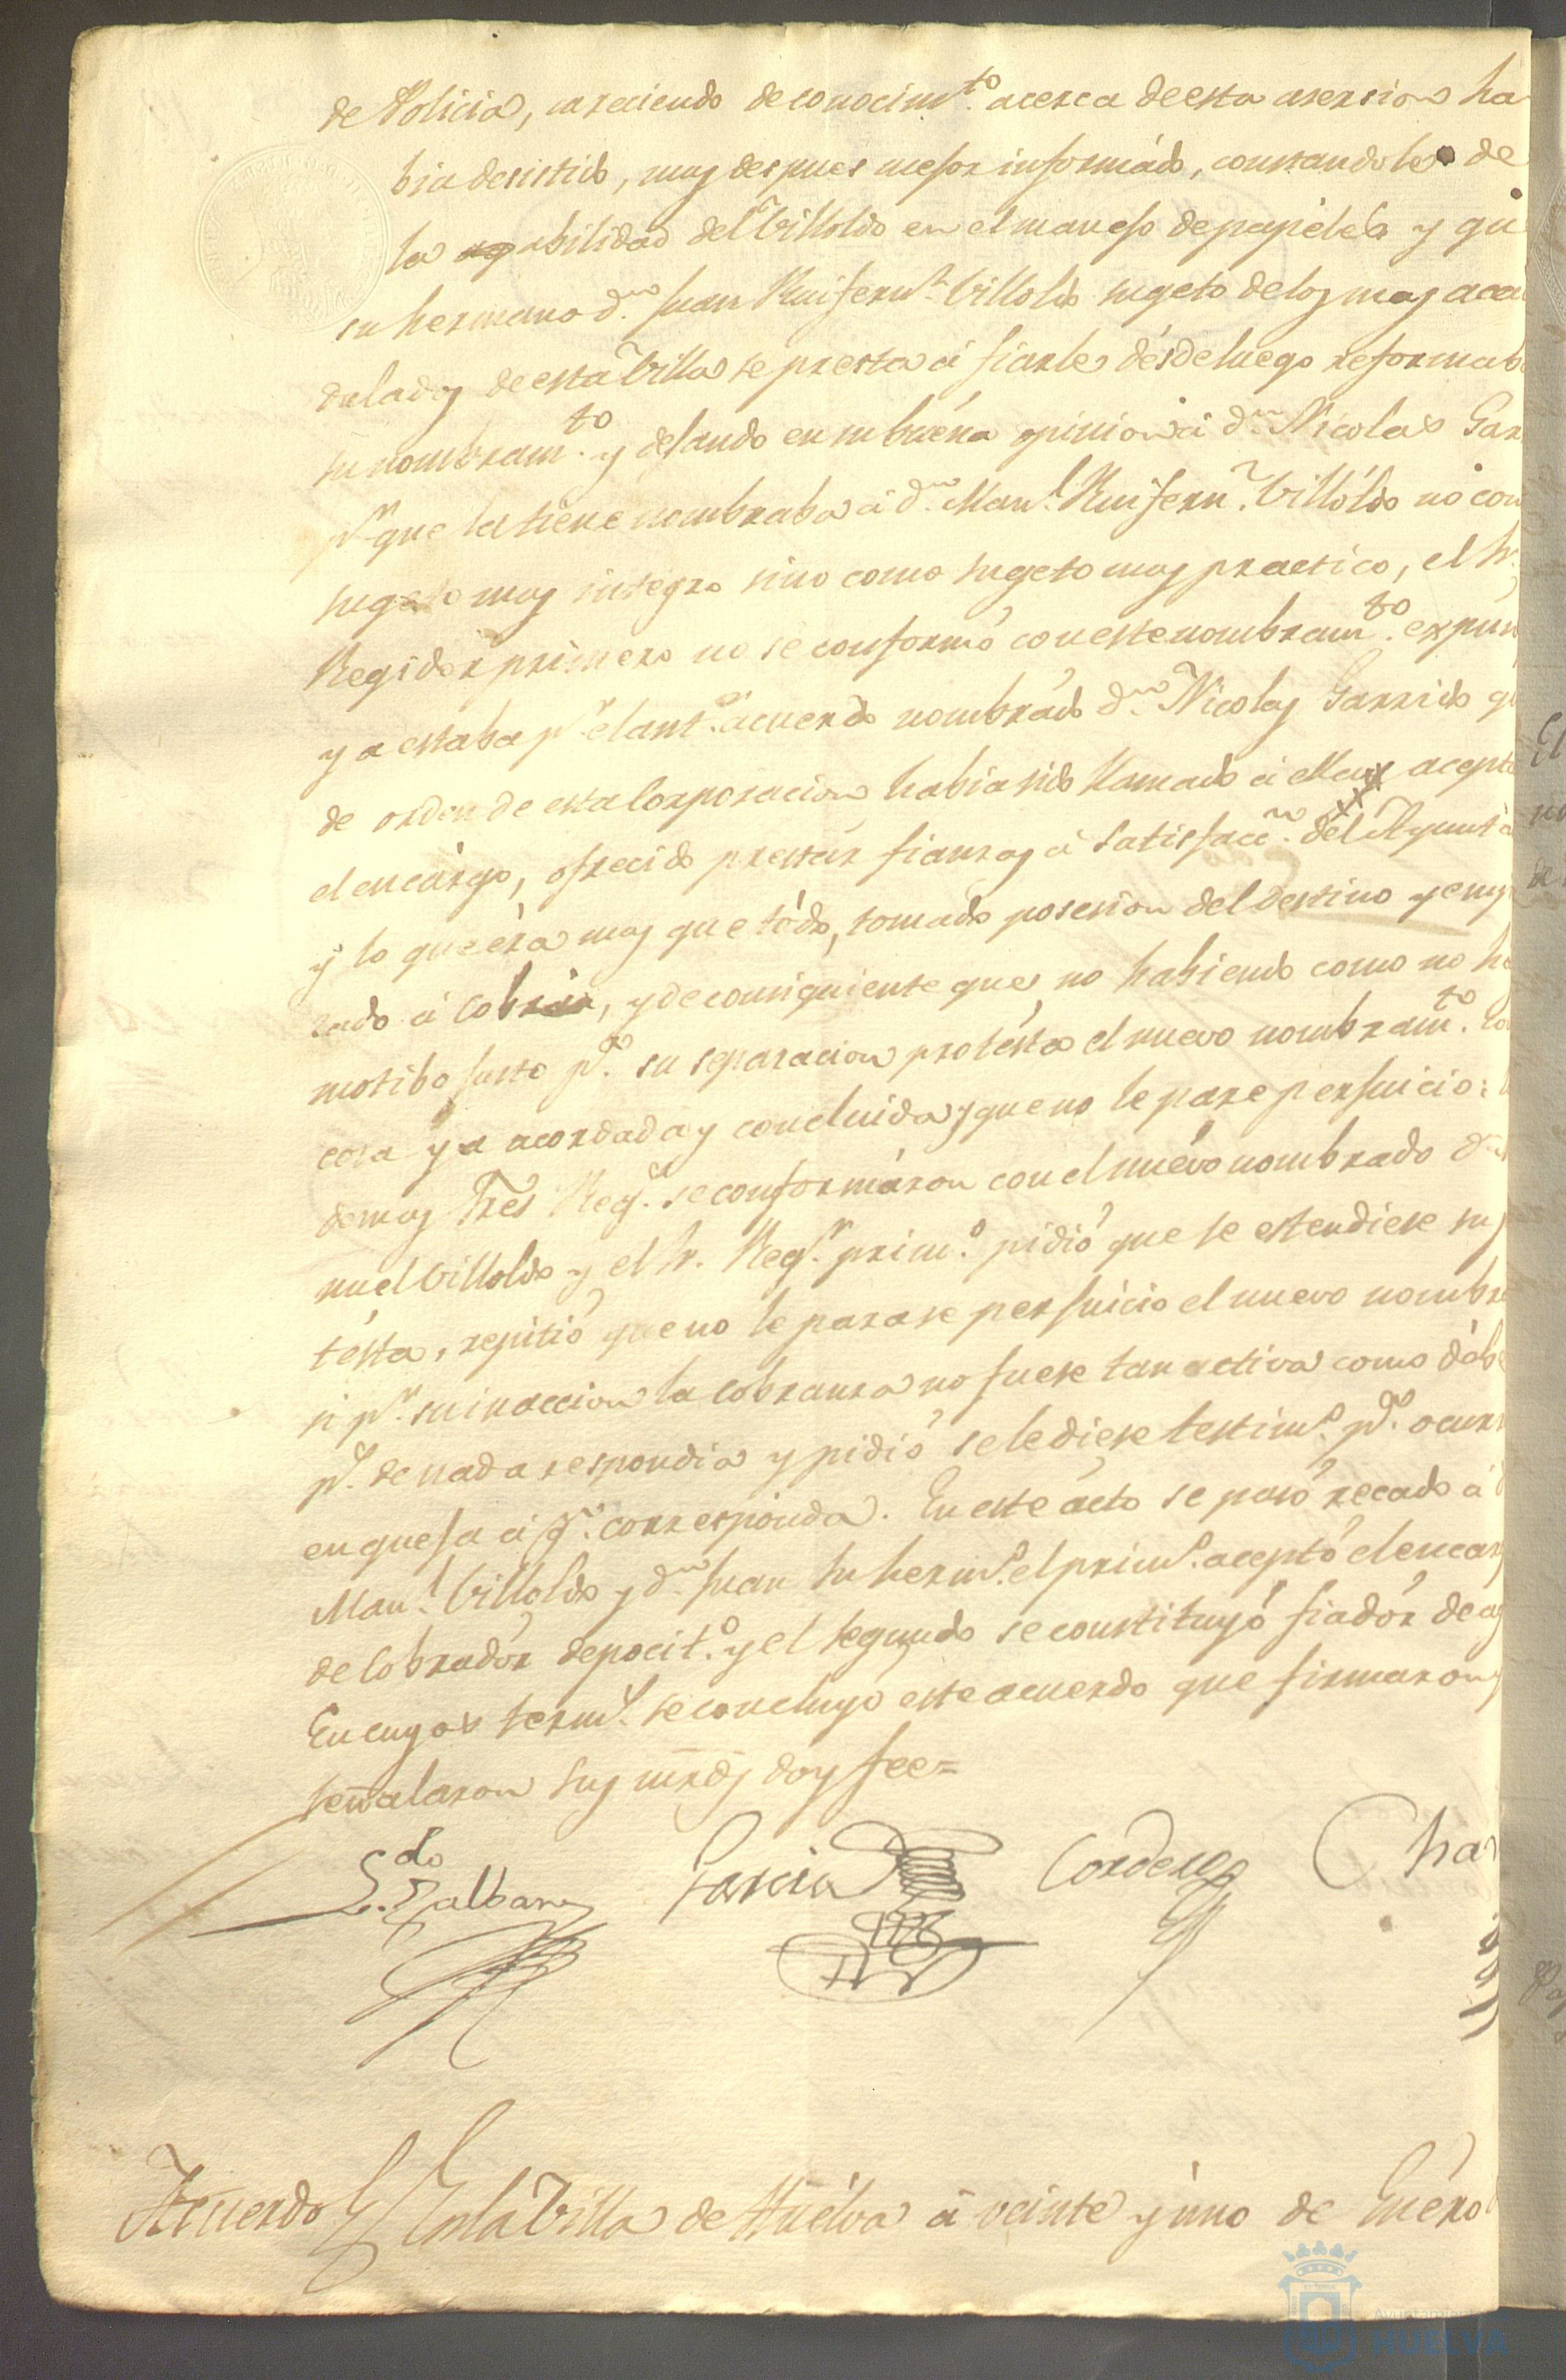 de Policia, careciendo de conocim.to acerca de esta asersion ha
bia desistido, mas despues mejor informado, constandole de
la abilidad del Villoldo en el manejo de papeles y qu
su hermano d.n Juan Ruifern.z Villoldo sugeto de los mas acau
dalados de esta Villa se presta á fiarle desde luego reformab
su nombram.to y dejando en su buena opinion á d.n Nicolas Gar
p.r que la tiene nombraba á d.n Man.l Ruifern.z Villoldo no con
sugeto mas integro sino como sugeto mas practico, el Sr.
Regidor primero no se conformó con este nombram.to expun
ya estaba p.r el ant.or acuerdo nombrado d.n Nicolas Garrido q
de orden de esta Corporacion habia sido llamado á ella acepto
el encargo, ofrecido prestar fianzas á satisfacc.n del Ayunt
y lo que era mas que todo, tomado posesion del Destino y emp
zado á Cobrar, y de consiguiente que no habiendo como no ha
motibo justo p.a su separacion protesta el nuevo nombram.to
cosa ya acordada y concluida y que no le pare perjuicio:
demas Sres Reg.s se conformaron con el nuevo nombrado d.n
nuel Villoldo y el Sr. Reg.r prim.o pidió que se estendiese su p
testa, repitió que no le parase perjuicio el nuevo nombra
si p.r su inaccion la cobranza no fuese tan activa como debe
p.s de nada respondia y pidió se le diese testim.o p.a ocurr
en queja á q.n corresponda. En este acto se pasó recado á d
Man.l Villoldo y d.n Juan su herm.o el prim.o aceptó el encar
de Cobrador deposit.o y el segundo se constituyó fiador de
En cuyos term.s se concluyó este acuerdo que firmaron y
señalaron sus mrds doy fee=
L.do Zalbar Garcia Cordero Cha
Acuerdo En la Villa de Huelva á veinte y uno de Enero
Ayuntami
HUELVA